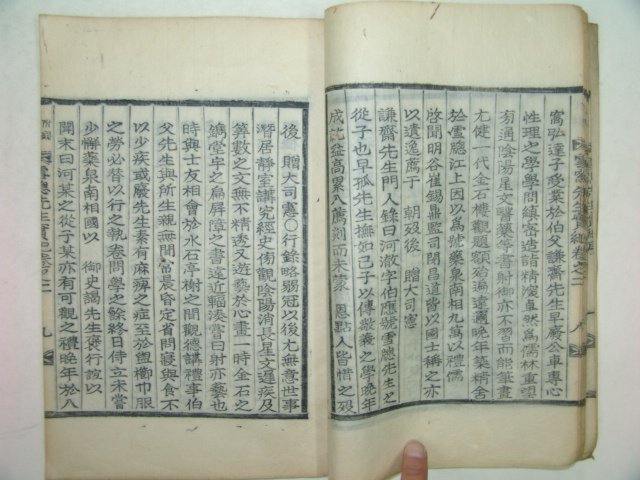 富弘達子受業於伯父謙齋先生早廢公車專心
性理之學學問縝密造詣精深蔚然爲儒林重望
旁通陰陽星文醫藥等書射御亦不習而能筆畫
尤健一代金石樓觀題額殆遍遠邇晩年築精舍
於雪牕江上因以爲號藥泉南相九萬以禮儒
啓聞明谷崔錫鼎監司閔昌道皆以國士稱之亦
以遺逸薦于 朝歿後 贈大司憲
謙齋先生門人錄曰河澈字伯應號雪牕先生之
從子也早孤先生撫如己子以傳敬義之學晩年
成就益高累入薦剡而未蒙 恩點人皆惜之歿
後 贈大司憲○行錄略弱冠以後尤無意世事
潛居靜室講究經史傍觀陰陽消長星文遲疾及
算數之文無不精透又遊藝於心畫一時金石之
鐫堂字之扁屛障之書遠近輻湊當射亦藝也
時與士友相會於水石亭榭之間觀德講禮事伯
父先生與所生親無間當晨昏定省問寢與食不
以少疾或廢先生素有麻痺之症至於盥櫛巾服
之勞必躬以行之執卷問學之餘終日侍立未嘗
少懈藥泉南相國以 御史謁先生褒行誼以
聞末曰河某之從子某亦有可觀之禮晩年於八
先生實紀卷之二
九